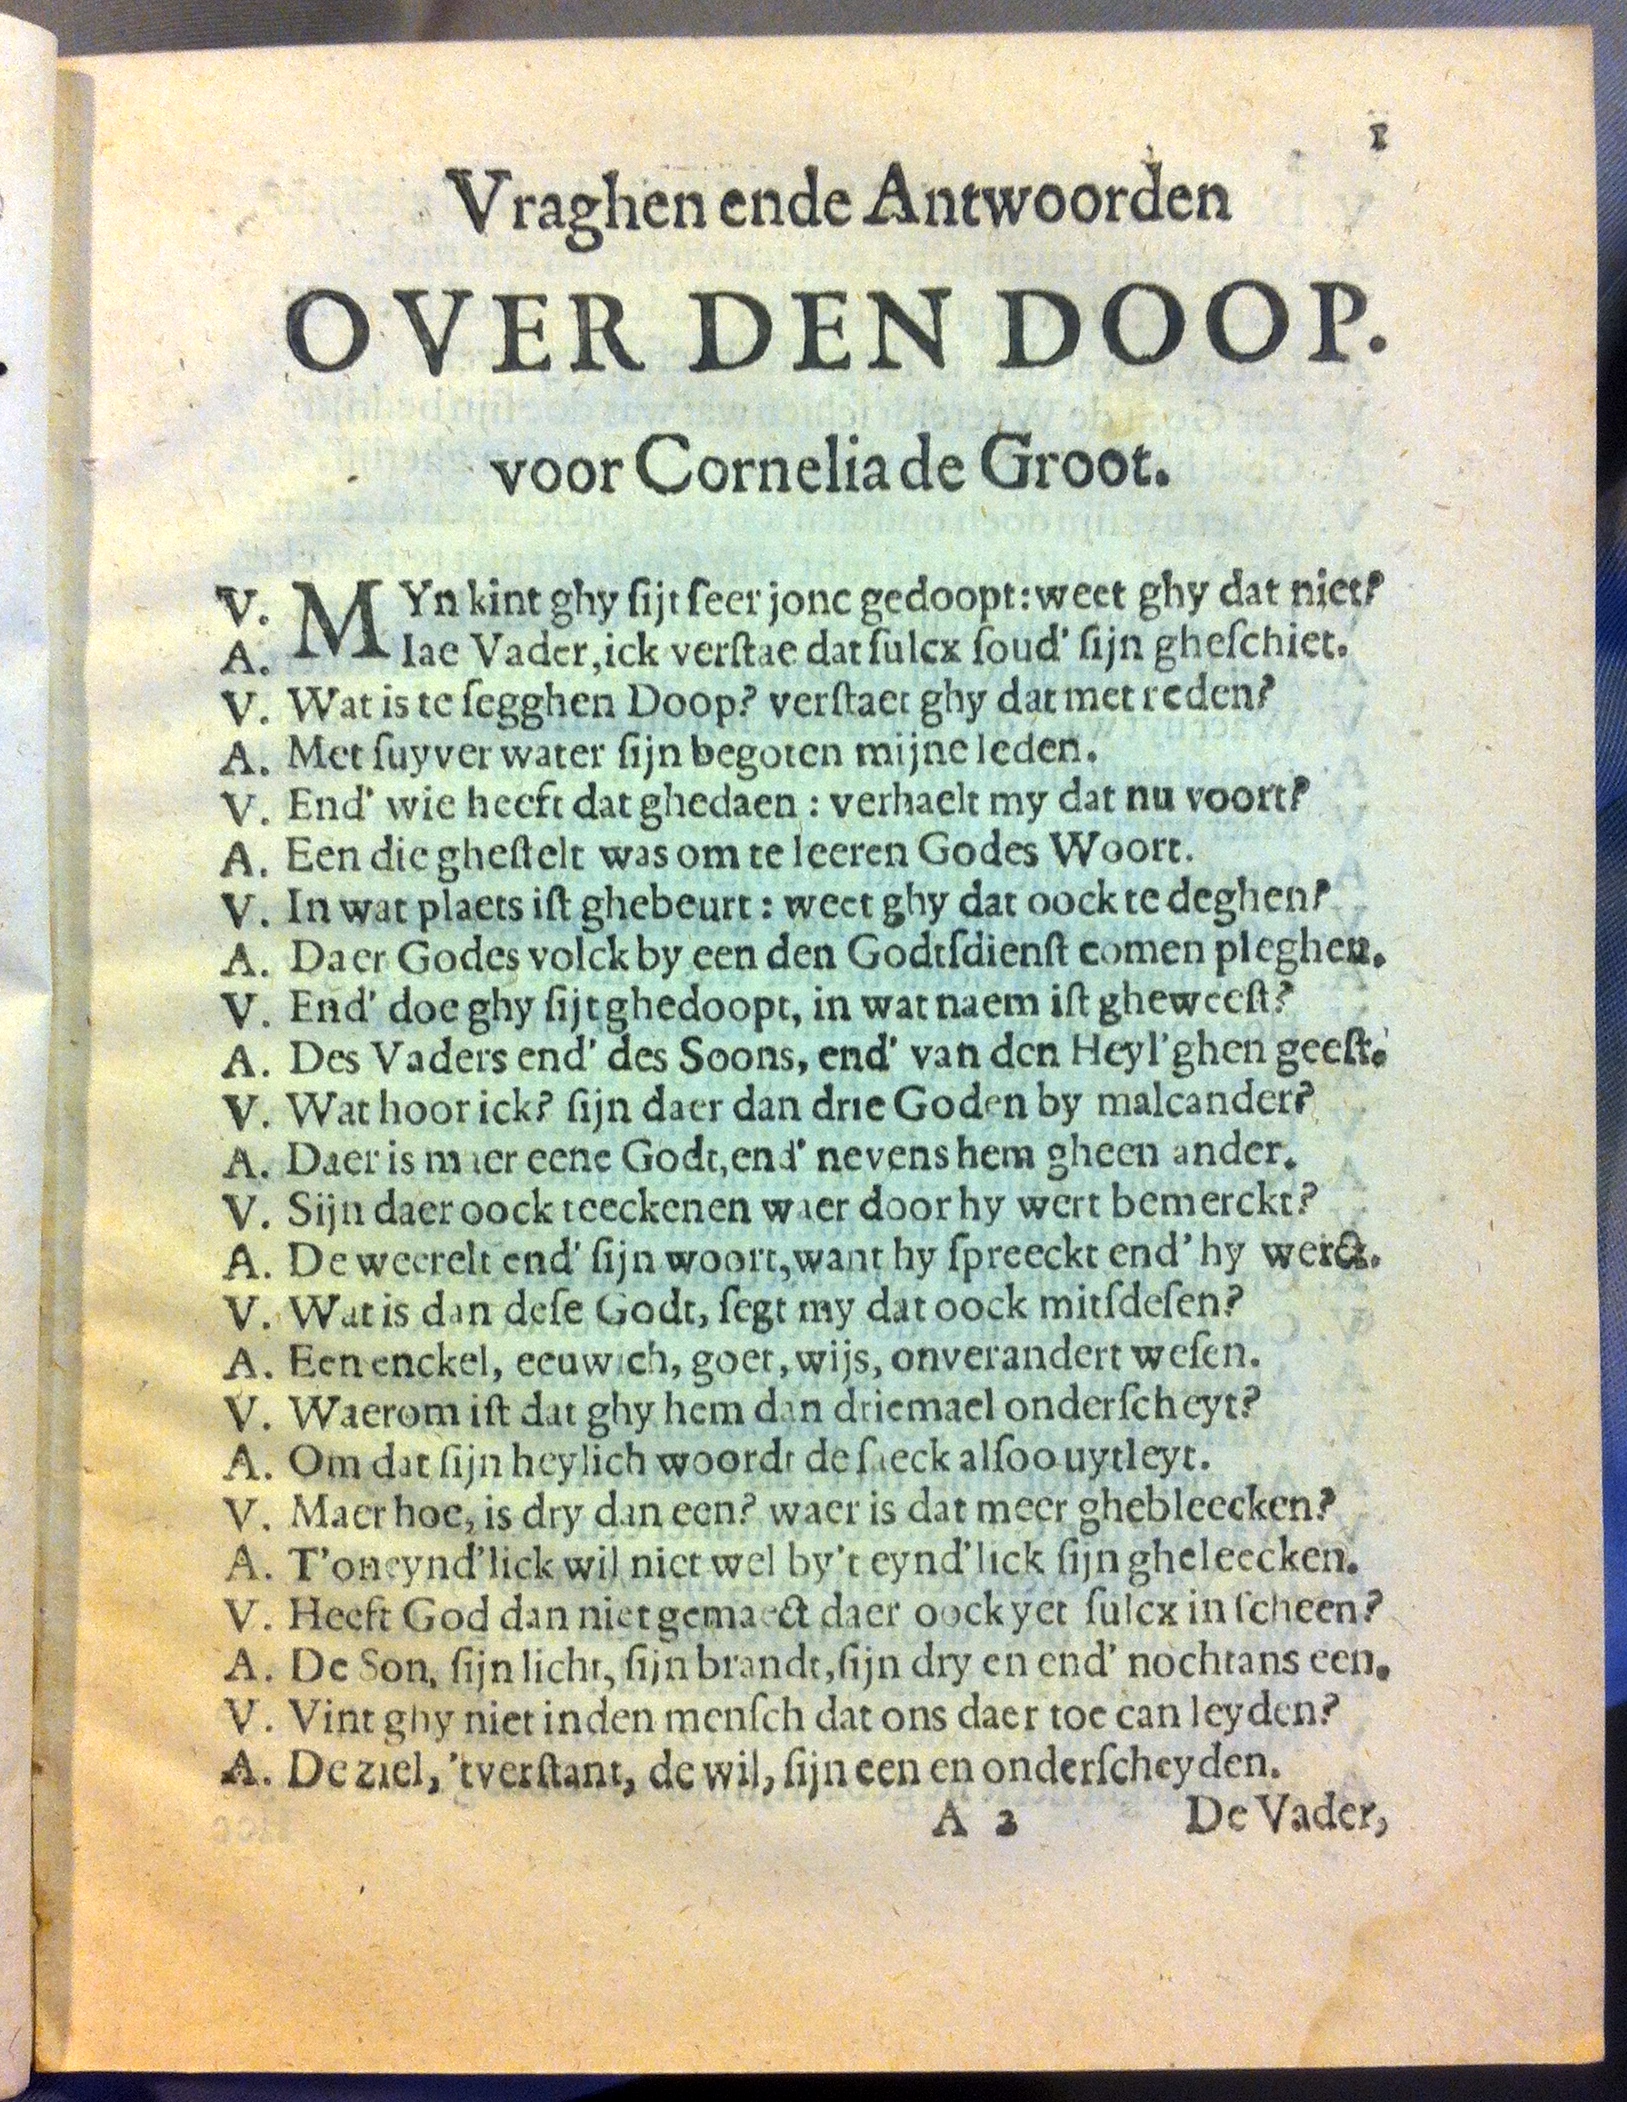 1
Vraghen ende Antwoorden
OVER DEN DOOP.
voor Cornelia de Groot.
V. MYn kint ghy ſijt ſeer jonc gedoopt: weet ghy dat niet?
A. Iae Vader, ick verſtae dat ſulcx ſoud' ſijn gheſchiet.
V. Wat is te ſegghen Doop? verſtaet ghy dat met reden?
A. Met ſuyver water ſijn begoten mijne leden.
V. End' wie heeft dat ghedaen : verhaelt my dat nu voort?
A. Een die gheſtelt was om te leeren Godes Woort.
V. In wat plaets iſt ghebeurt : weet ghy dat oock te deghen?
A. Daer Godes volck by een den Godtſdienſt comen pleghen.
V. End' doe ghy ſijt ghedoopt, in wat naem iſt gheweeſt?
A. Des Vaders end' des Soons, end' van den Heyl'ghen geeſt.
V. Wat hoor ick? ſijn daer dan drie Goden by malcander?
A. Daer is maer eene Godt, end' nevens hem gheen ander.
V. Sijn daer oock teeckenen waer door hy wert bemerckt?
A. De weerelt end' ſijn woort, want hy ſpreeckt end' hy werct.
V. Wat is dan deſe Godt, ſegt my dat oock mitſdeſen?
A. Een enckel, eeuwich, goet, wijs, onverandert weſen.
V. Waerom iſt dat ghy hem dan driemael onderſcheyt?
A. Om dat ſijn heylich woordt de ſaeck alſoo uytleyt.
V. Maer hoe, is dry dan een? waer is dat meer ghebleecken?
A. T'oneynd'lick wil niet wel by't eynd'lick ſijn gheleecken.
V. Heeft God dan niet gemaect daer oock yet ſulcx in ſcheen?
A. De Son, ſijn licht, ſijn brandt, ſijn dry en end' nochtans een.
V. Vint ghy niet inden menſch dat ons daer toe can leyden?
A. De ziel, 'tverſtant, de wil, ſijn een en onderſcheyden.
A 2 De Vader,